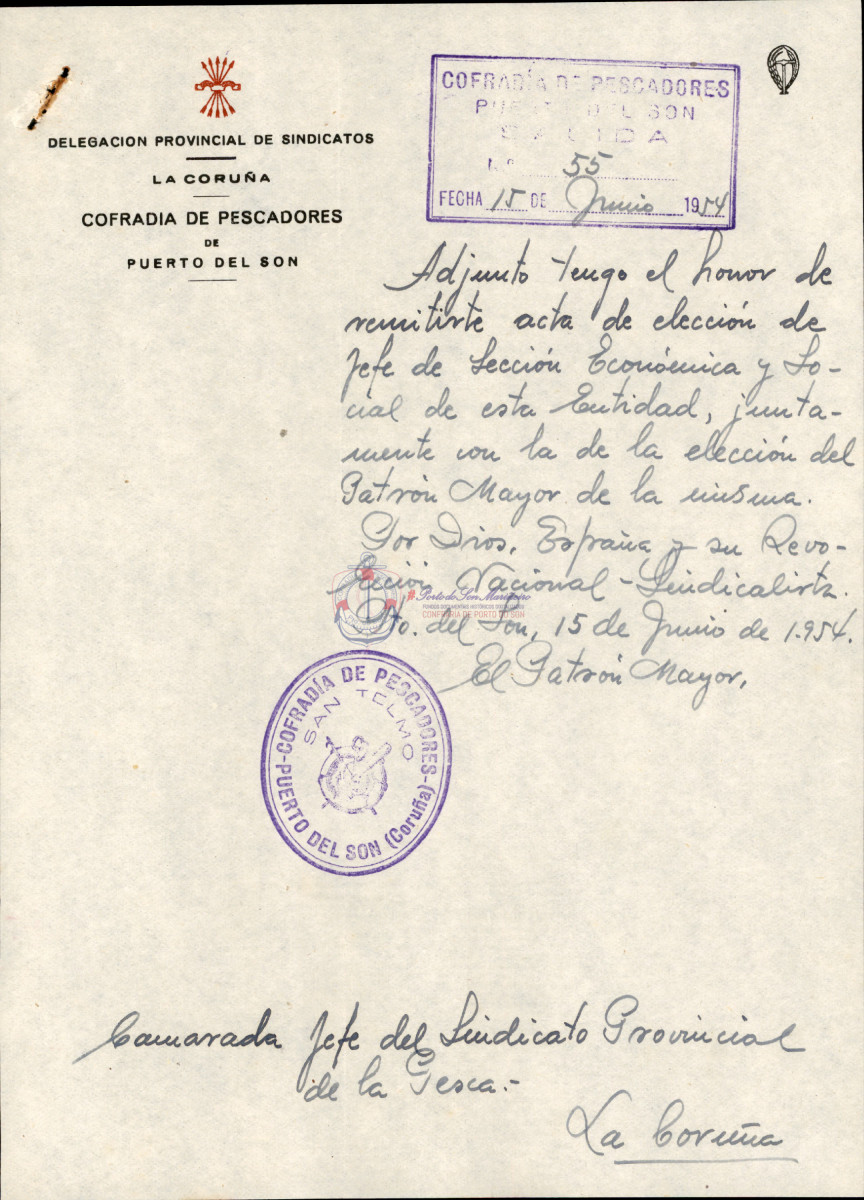 DELEGACION PROVINCIAL DE SINDICATOS
LA CORUÑA
COFRADIA DE PESCADORES
DE
PUERTO DEL SON
COFRADÍA DE PESCADORES
PUERTO DEL SON
SALIDA
N.º 55
FECHA 15 DE Junio 1954
Adjunto tengo el honor de
remitirte acta de elección de
Jefe de Sección Económica y So-
cial de esta Entidad, junta-
mente con la de la elección del
Patrón Mayor de la misma.
Por Dios, España y su Revo-
lución Nacional-Sindicalista.
Pto. del Son, 15 de Junio de 1.954.
El Patrón Mayor,
Porto do Son Mariñeiro
CONFRARÍA DE PORTO DO SON
COFRADÍA DE PESCADORES
SAN TELMO
PUERTO DEL SON (Coruña)
Camarada Jefe del Sindicato Provincial
de la Pesca.-
La Coruña